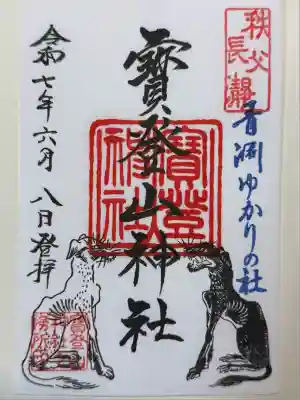 秩父
長瀞
青淵ゆかりの社
寶登山神社
寶登山
神社
令和七年六月八日登拝